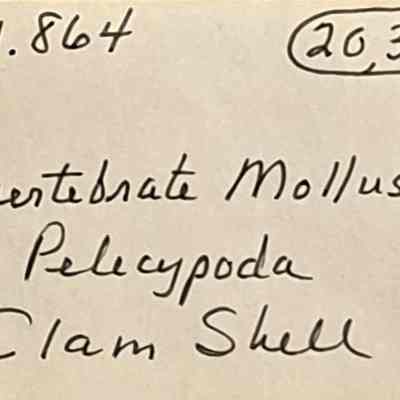 .864 20,3
ertebrate Mollus
Pelecypoda
Clam Shell